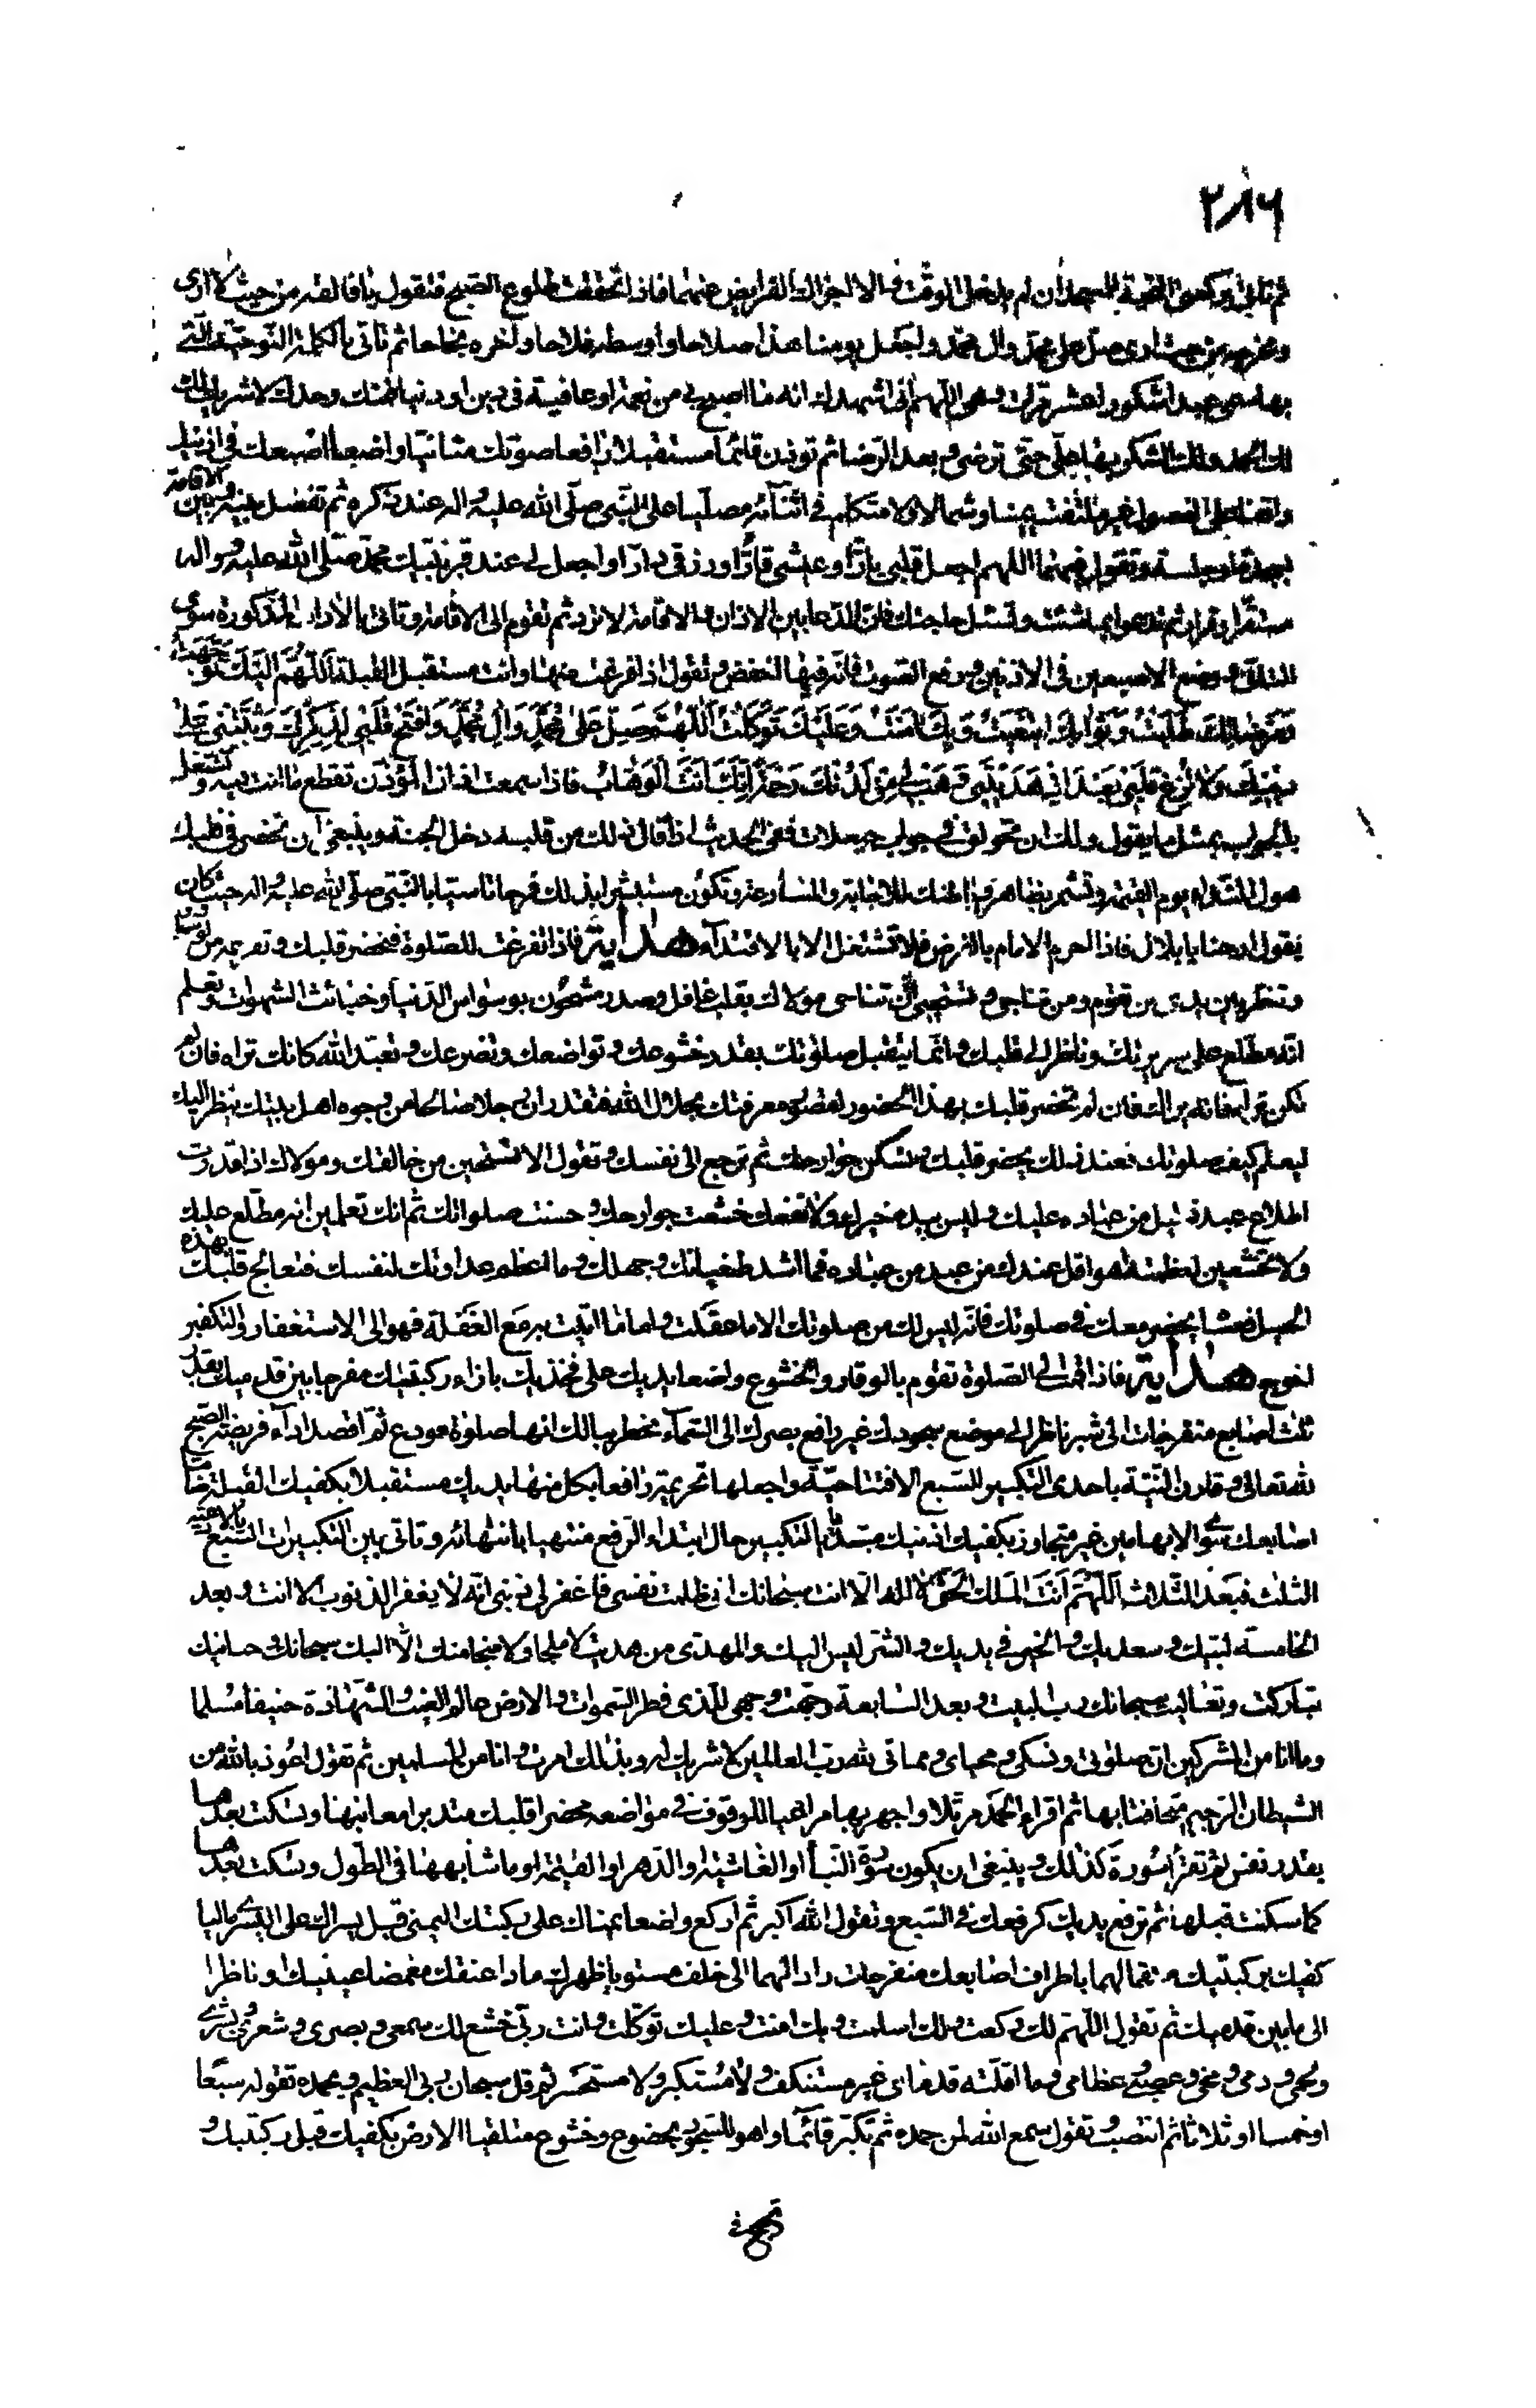 ٢٨٦
ثم تاتي بركعتي التحية للمسجد ان لم يدخل الوقت و الا اجزاك الفرايض عنهما فاذا تحققت طلوع الصبح فتقول يا فالقه من حيث لا ارى
ومخرجه من حيث ارى صل على محمد وال محمد واجعل يومنا هذا صلاحا واوسطه فلاحا واخره نجاحا ثم تاتي بالكلمة التي
بها سمي عبدا شكورا عشر مرات وهي اللهم اني اشهدك انه ما اصبح بي من نعمة او عافية في دين او دنيا فمنك وحدك لا شريك لك
لك الحمد ولك الشكر بها علي حتى ترضى و بعد الرضا ثم توذن قائما مستقبلا رافعا صوتك متانيا واضعا اصبعيك في اذنيك
واقفا على الفصول غير ملتفت يمينا وشمالا ولا متكلم في اثنائه مصليا على النبي صلى الله عليه واله عند ذكره ثم تفصل بينه وبين الاقامة
بسجدة او جلسة وتقول فيهما اللهم اجعل قلبي بارا وعيشي قارا ورزقي دارا واجعل لي عند قبر نبيك محمد صلى الله عليه واله
مستقرا وقرارا ثم تدعو بما شئت وتسئل حاجتك فان الدعا بين الاذان والاقامة لا ترد ثم تقوم الى الاقامة وتاتي بالاداب المذكورة سوى
التاني و وضع الاصبعين في الاذنين و رفع الصوت فانه فيها اخفض وتقول اذا فرغت منها وانت مستقبل القبلة اللهم اليك توجهت
ومرضاتك طلبت وثوابك ابتغيت وبك امنت وعليك توكلت اللهم صل على محمد وال محمد وافتح قلبي لذكرك وثبتني على
دينك ولا تزغ قلبي بعد اذ هديتني وهب لي من لدنك رحمة انك انت الوهاب فاذا سمعت اذان المؤذن تقطع ما انت فيه وتشتغل
بالجواب بمثل ما يقول ولك ان تحولق في جواب حيعلات ففي الحديث اذا قال ذلك من قلبه دخل الجنة وينبغي ان تحضر في قلبك
هول النداء يوم القيمة وتشمر بظاهرك وباطنك للاجابة والمسارعة وتكون مستبشرا بذلك فرحانا متاسيا بالنبي صلى الله عليه واله حيث كان
يقول ارحنا يا بلال فاذا احرم الامام بالفرض فلا تشتغل الا بالاقتداء هداية فاذا تفرغت للصلوة فتحضر قلبك و تفرغه من الوساوس
وتنظر بين يدي من تقوم ومن تناجي و تستحيي ان تناجي مولاك بقلب غافل وصدر مشحون بوسواس الدنيا وخبائث الشهوات وتعلم
انه مطلع على سريرتك وناظر الى قلبك وانما يتقبل صلوتك بقدر خشوعك و تواضعك وتضرعك و تعبد الله كانك تراه فان لم
تكن تراه فانه يراك فان لم تحضر قلبك بهذا الحضور لقصور معرفتك بجلال الله فتقدر ان رجلا صالحا من وجوه اهل بيتك ينظر اليك
ليعلم كيف صلوتك فعند ذلك يحضر قلبك وتسكن جوارحك ثم ترجع الى نفسك و تقول الا تستحين من خالقك ومولاك اذا قدرت
اطلاع عبد ذليل من عباده عليك وليس بيده خيرك ولا نفعك خشعت جوارحك و حسنت صلواتك ثم انك تعلمين انه مطلع عليك
ولا تخشعين لعظمته اهو اقل عندك من عبد من عباده فما اشد طغيانك و جهلك و ما اعظم عداوتك لنفسك فتعالج قلبك بهذه
الحيل فعسى ان يحضر معك في صلوتك فانه ليس لك من صلوتك الا ما عقلت واما ما اتيت به مع الغفلة فهو الى الاستغفار والتكفير
احوج هداية فاذا قمت الى الصلوة تقوم بالوقار والخشوع واضعا يديك على فخذيك بازاء ركبتيك مفرجا بين قدميك بقدر
ثلث اصابع منفرجات الى شبر ناظرا الى موضع سجودك غير رافع بصرك الى السماء مخطرا ببالك انها صلوة مودع ثم اقصد اداء فريضة الصبح
لله تعالى و قارن النية باحدى التكبير السبع الافتتاحية واجعلها تحريمة رافعا بكل منها يديك مستقبلا بكفيك القبلة ضاما
اصابعك سوى الابهامين غير متجاوز بكفيك اذنيك مبتدئا بالتكبير حال ابتداء الرفع منتهيا بانتهائه وتاتي بين التكبيرات السبع بالادعية
الثلث فبعد الثلاث اللهم انت الملك الحق لا اله الا انت سبحانك اني ظلمت نفسي فاغفر لي ذنبي انه لا يغفر الذنوب الا انت و بعد
الخامسة لبيك و سعديك و الخير في يديك و الشر ليس اليك والمهدي من هديت لا ملجا ولا منجا منك الا اليك سبحانك و حنانيك
تباركت وتعاليت سبحانك رب البيت و بعد السابعة وجهت وجهي للذي فطر السموات والارض عالم الغيب والشهادة حنيفا مسلما
وما انا من المشركين ان صلوتي ونسكي و محياي ومماتي لله رب العالمين لا شريك له وبذلك امرت و انا من المسلمين ثم تقول اعوذ بالله من
الشيطان الرجيم مخافتا بها ثم اقراء الحمد مرتلا واجهر بها مراعيا للوقوف في مواضعه محضرا قلبك متدبرا معانيها وتسكت بعدها
بقدر نفس ثم تقرأ سورة كذلك و ينبغي ان يكون سورة النبأ او الغاشية او الدهر او القيمة او ما شابهها في الطول وتسكت بعدها
كما سكنت قبلها ثم ترفع يديك كرفعك في السبع وتقول الله اكبر ثم اركع واضعا يمناك على ركبتك اليمنى قبل يسراك على اليسرى ماليا
كفيك بركبتيك و تلقمهما باطراف اصابعك منفرجات رادا لهما الى خلف مستويا ظهرك مادا عنقك مغمضا عينيك او ناظرا
الى ما بين قدميك ثم تقول اللهم لك ركعت ولك اسلمت و بك امنت و عليك توكلت و انت ربي خشع لك سمعي و بصري و شعري و بشري
ولحمي و دمي و مخي و عصبي و عظامي وما اقلته قدماي غير مستنكف و لا مستكبر ولا مستحسر ثم قل سبحان ربي العظيم و بحمده تقوله سبعا
او خمسا او ثلاثا ثم انتصب و تقول سمع الله لمن حمده ثم تكبر قائما واهو للسجود بخضوع وخشوع متلقيا الارض بكفيك قبل ركبتيك و